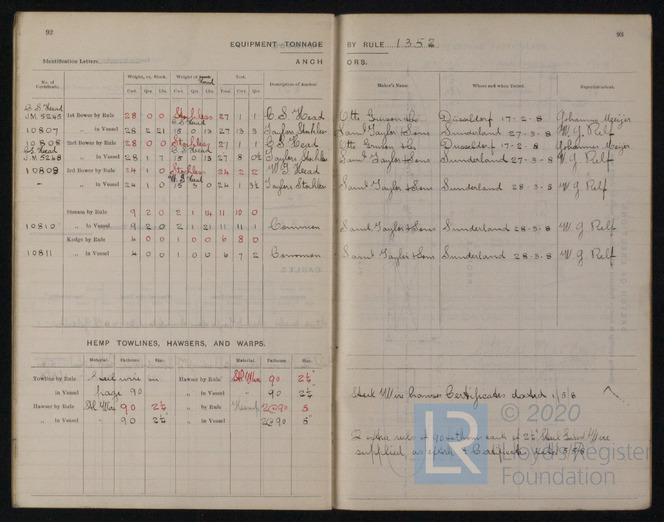 92
EQUIPMENT TONNAGE BY RULE 1352
93
Identification Letters
ANCHORS.
No. of Certificate.
Weight, ex. Stock.
Weight of
Test.
Description of Anchor
Maker's Name.
Where and when Tested.
Superintendent.
Cwt. Qrs. Lbs. Cwt. Qrs. Lbs. Tons Cwt. Qrs.
C S Head
J.M. 5245 1st Bower by Rule 28 0 0 Stockless 27 1 1 C S Head Düsseldorf 17-2-8
C S Head
10807 " in Vessel 28 2 21 15 0 13 27 13 3 Taylors Stockless Saml Taylor & Sons Sunderland 27-3-8 W. G. Relf
2nd Bower by Rule 28 0 0 Stockless 27 1 1 Head Düsseldorf 17-2-8
Head
J.M. 5248 " in Vessel 28 1 7 15 0 13 27 8 0½ Taylors Stockless Saml Taylor & Sons Sunderland 27-3-8 W. G. Relf
10809 3rd Bower by Rule 24 1 0 Stockless 24 2 2 Head
Head
" in Vessel 24 1 0 24 1 3½ Taylors Stockless Saml Taylor & Sons Sunderland 28-3-8 W. G. Relf
Stream by Rule 9 2 0 2 1 14 11 10 0
10810 " in Vessel 9 2 0 2 1 21 11 11 1 Common Saml Taylor & Sons Sunderland 28-3-8 W. G. Relf
Kedge by Rule 4 0 0 1 0 0 6 8 0
10811 " in Vessel 4 0 0 1 0 0 6 7 2 Common Saml Taylor & Sons Sunderland 28-3-8 W. G. Relf
HEMP TOWLINES, HAWSERS, AND WARPS.
Material. Fathoms. Size. Material. Fathoms. Size.
Towline by Rule Steel wire on Hawser by Rule Stl Wire 90 2½"
" in Vessel page 90 " in Vessel " 90 2½"
Hawser by Rule Stl Wire 90 2½" " by Rule Hemp 2@90 5
" in Vessel " 90 2½" " in Vessel 2@90 5"
Steel Wire Hawser Certificates dated 1/5/8
2 extra of 90 fathoms each of 2½" Steel Wire
supplied as Certificate 5/5/8
© 2020
LR
Lloyd's Register
Foundation